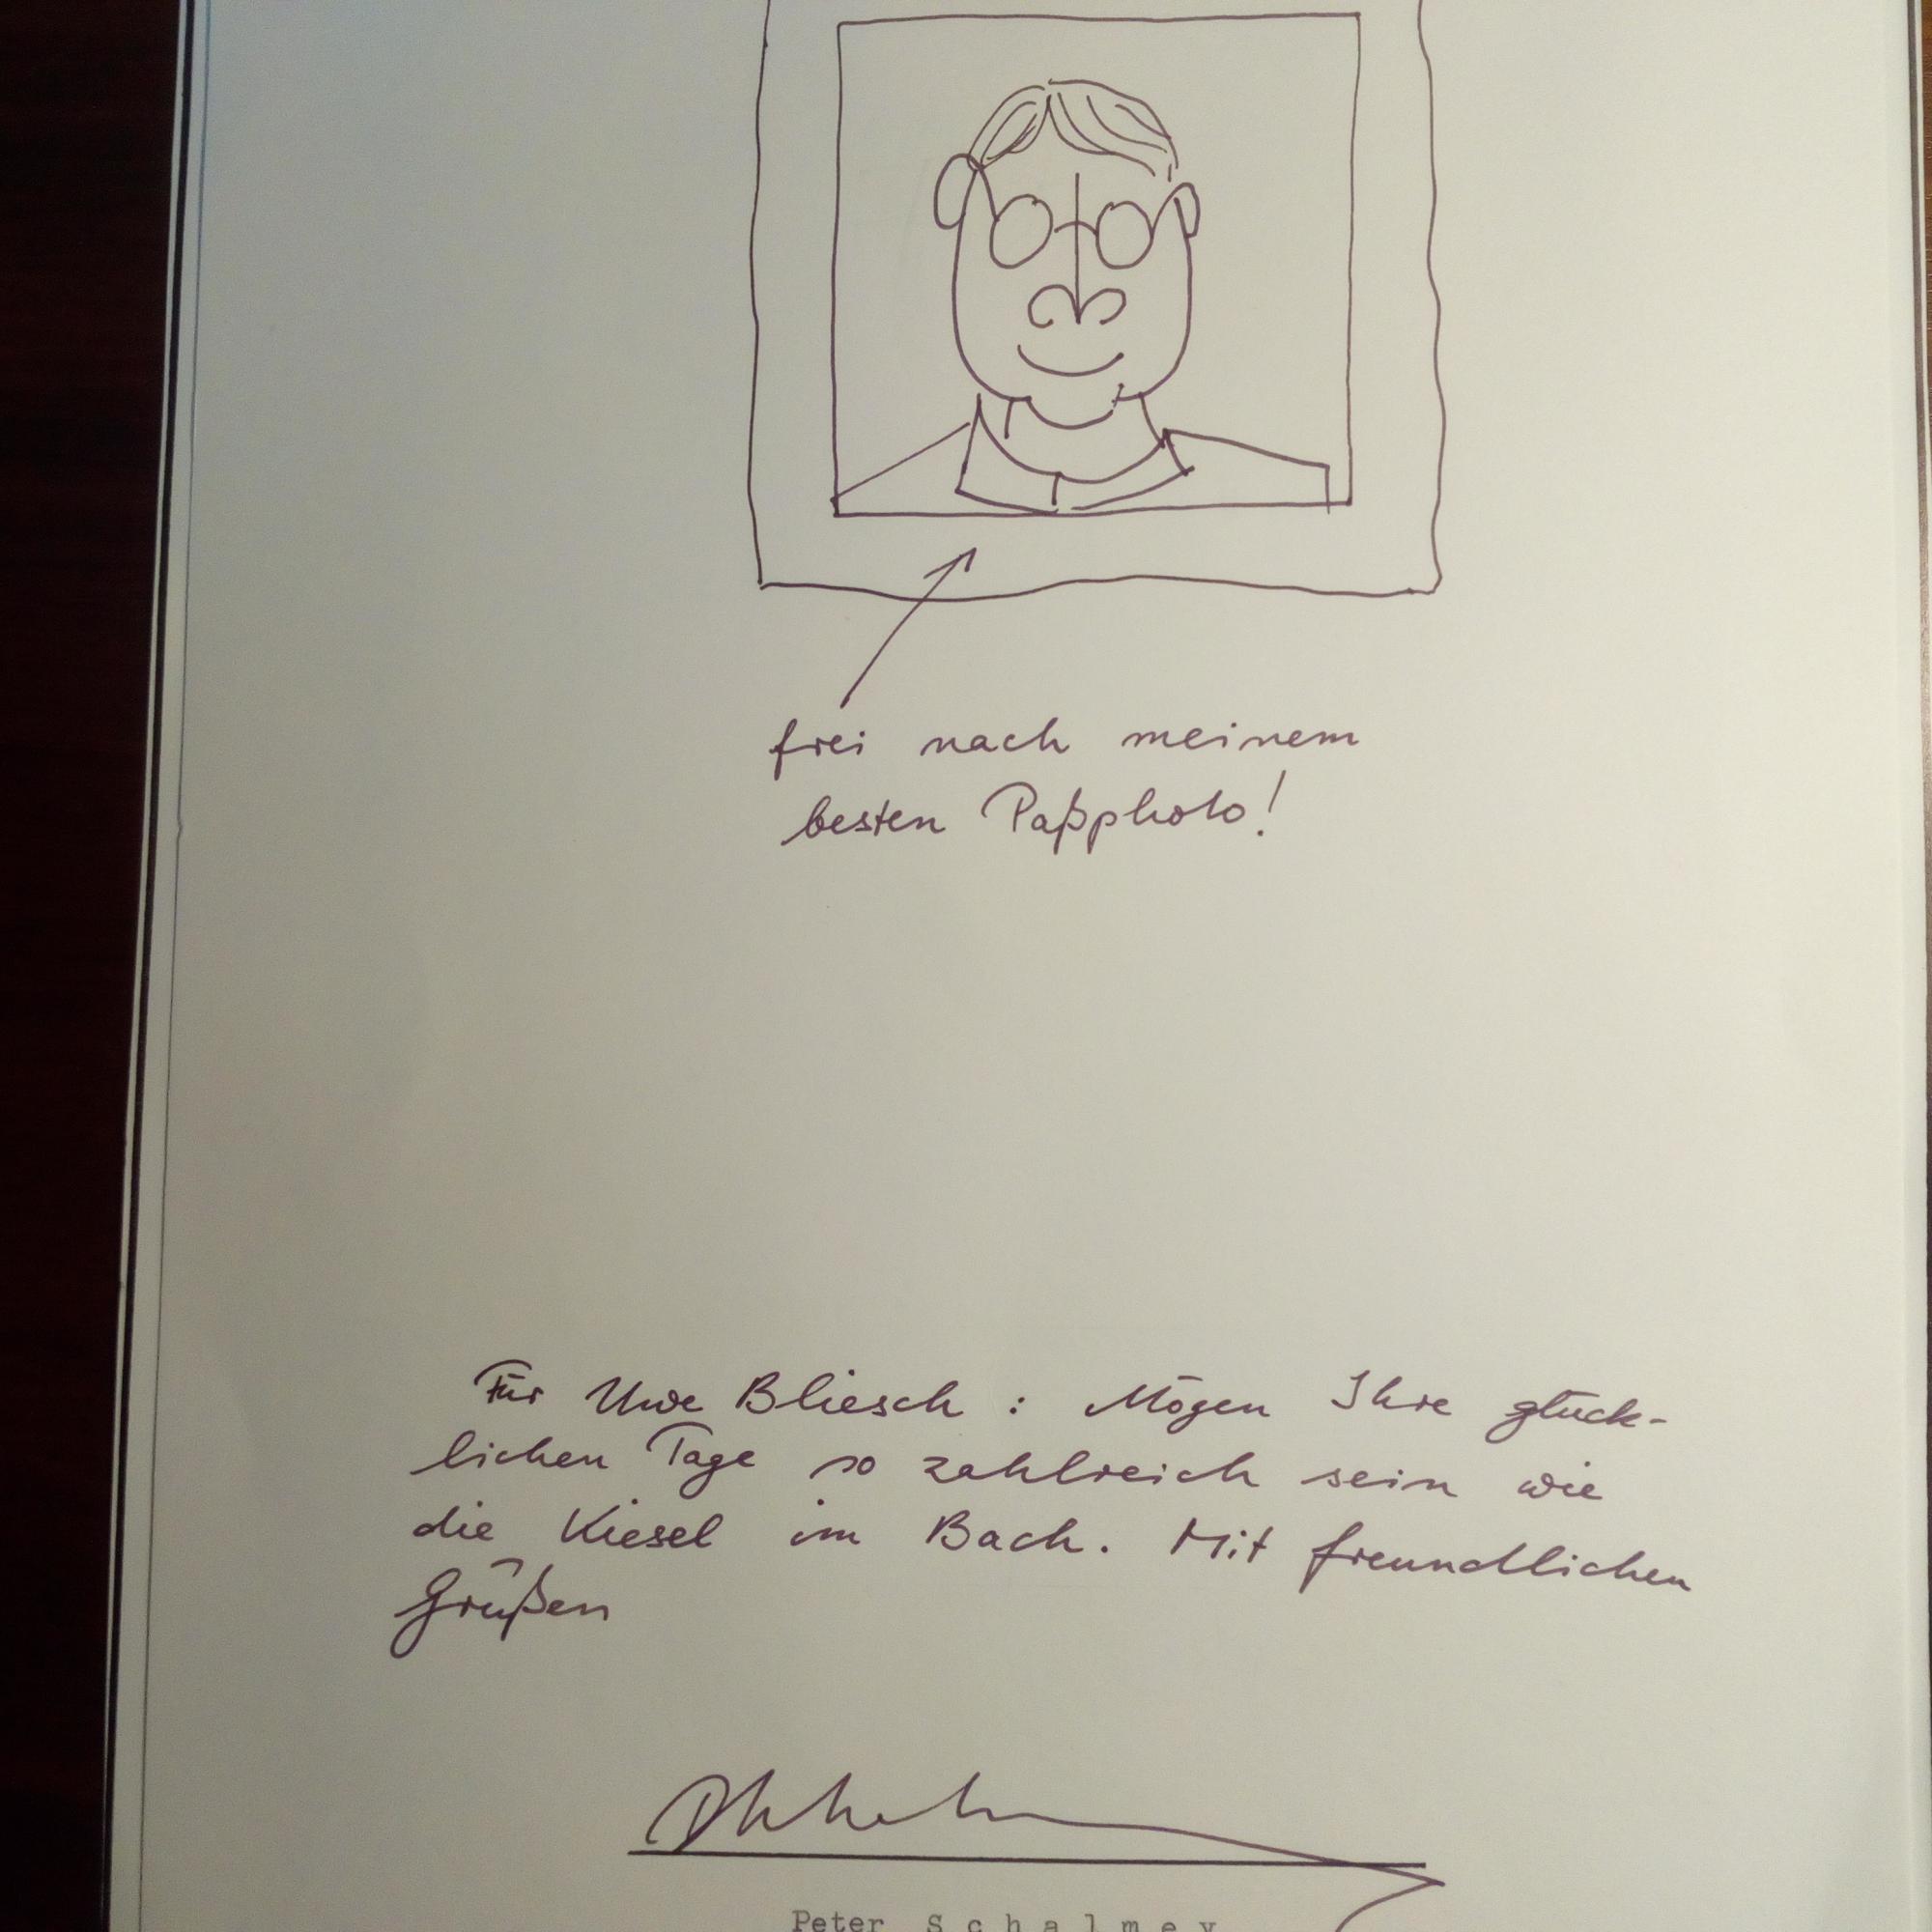 frei nach meinem
besten Paßphoto!
Für Uwe Bliesch : Mögen Ihre glück-
lichen Tage so zahlreich sein wie
die Kiesel im Bach. Mit freundlichen
Grüßen
Peter Schalmey